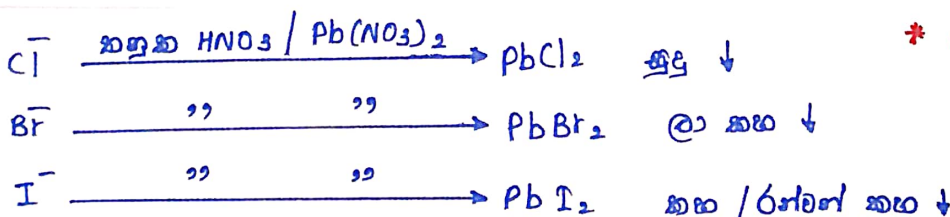 Cl⁻ තනුක HNO3 / Pb(NO3)2 → PbCl2 සුදු ↓ *
Br⁻ ,, ,, → PbBr2 ලා කහ ↓
I⁻ ,, ,, → PbI2 කහ / රන්වන් කහ ↓